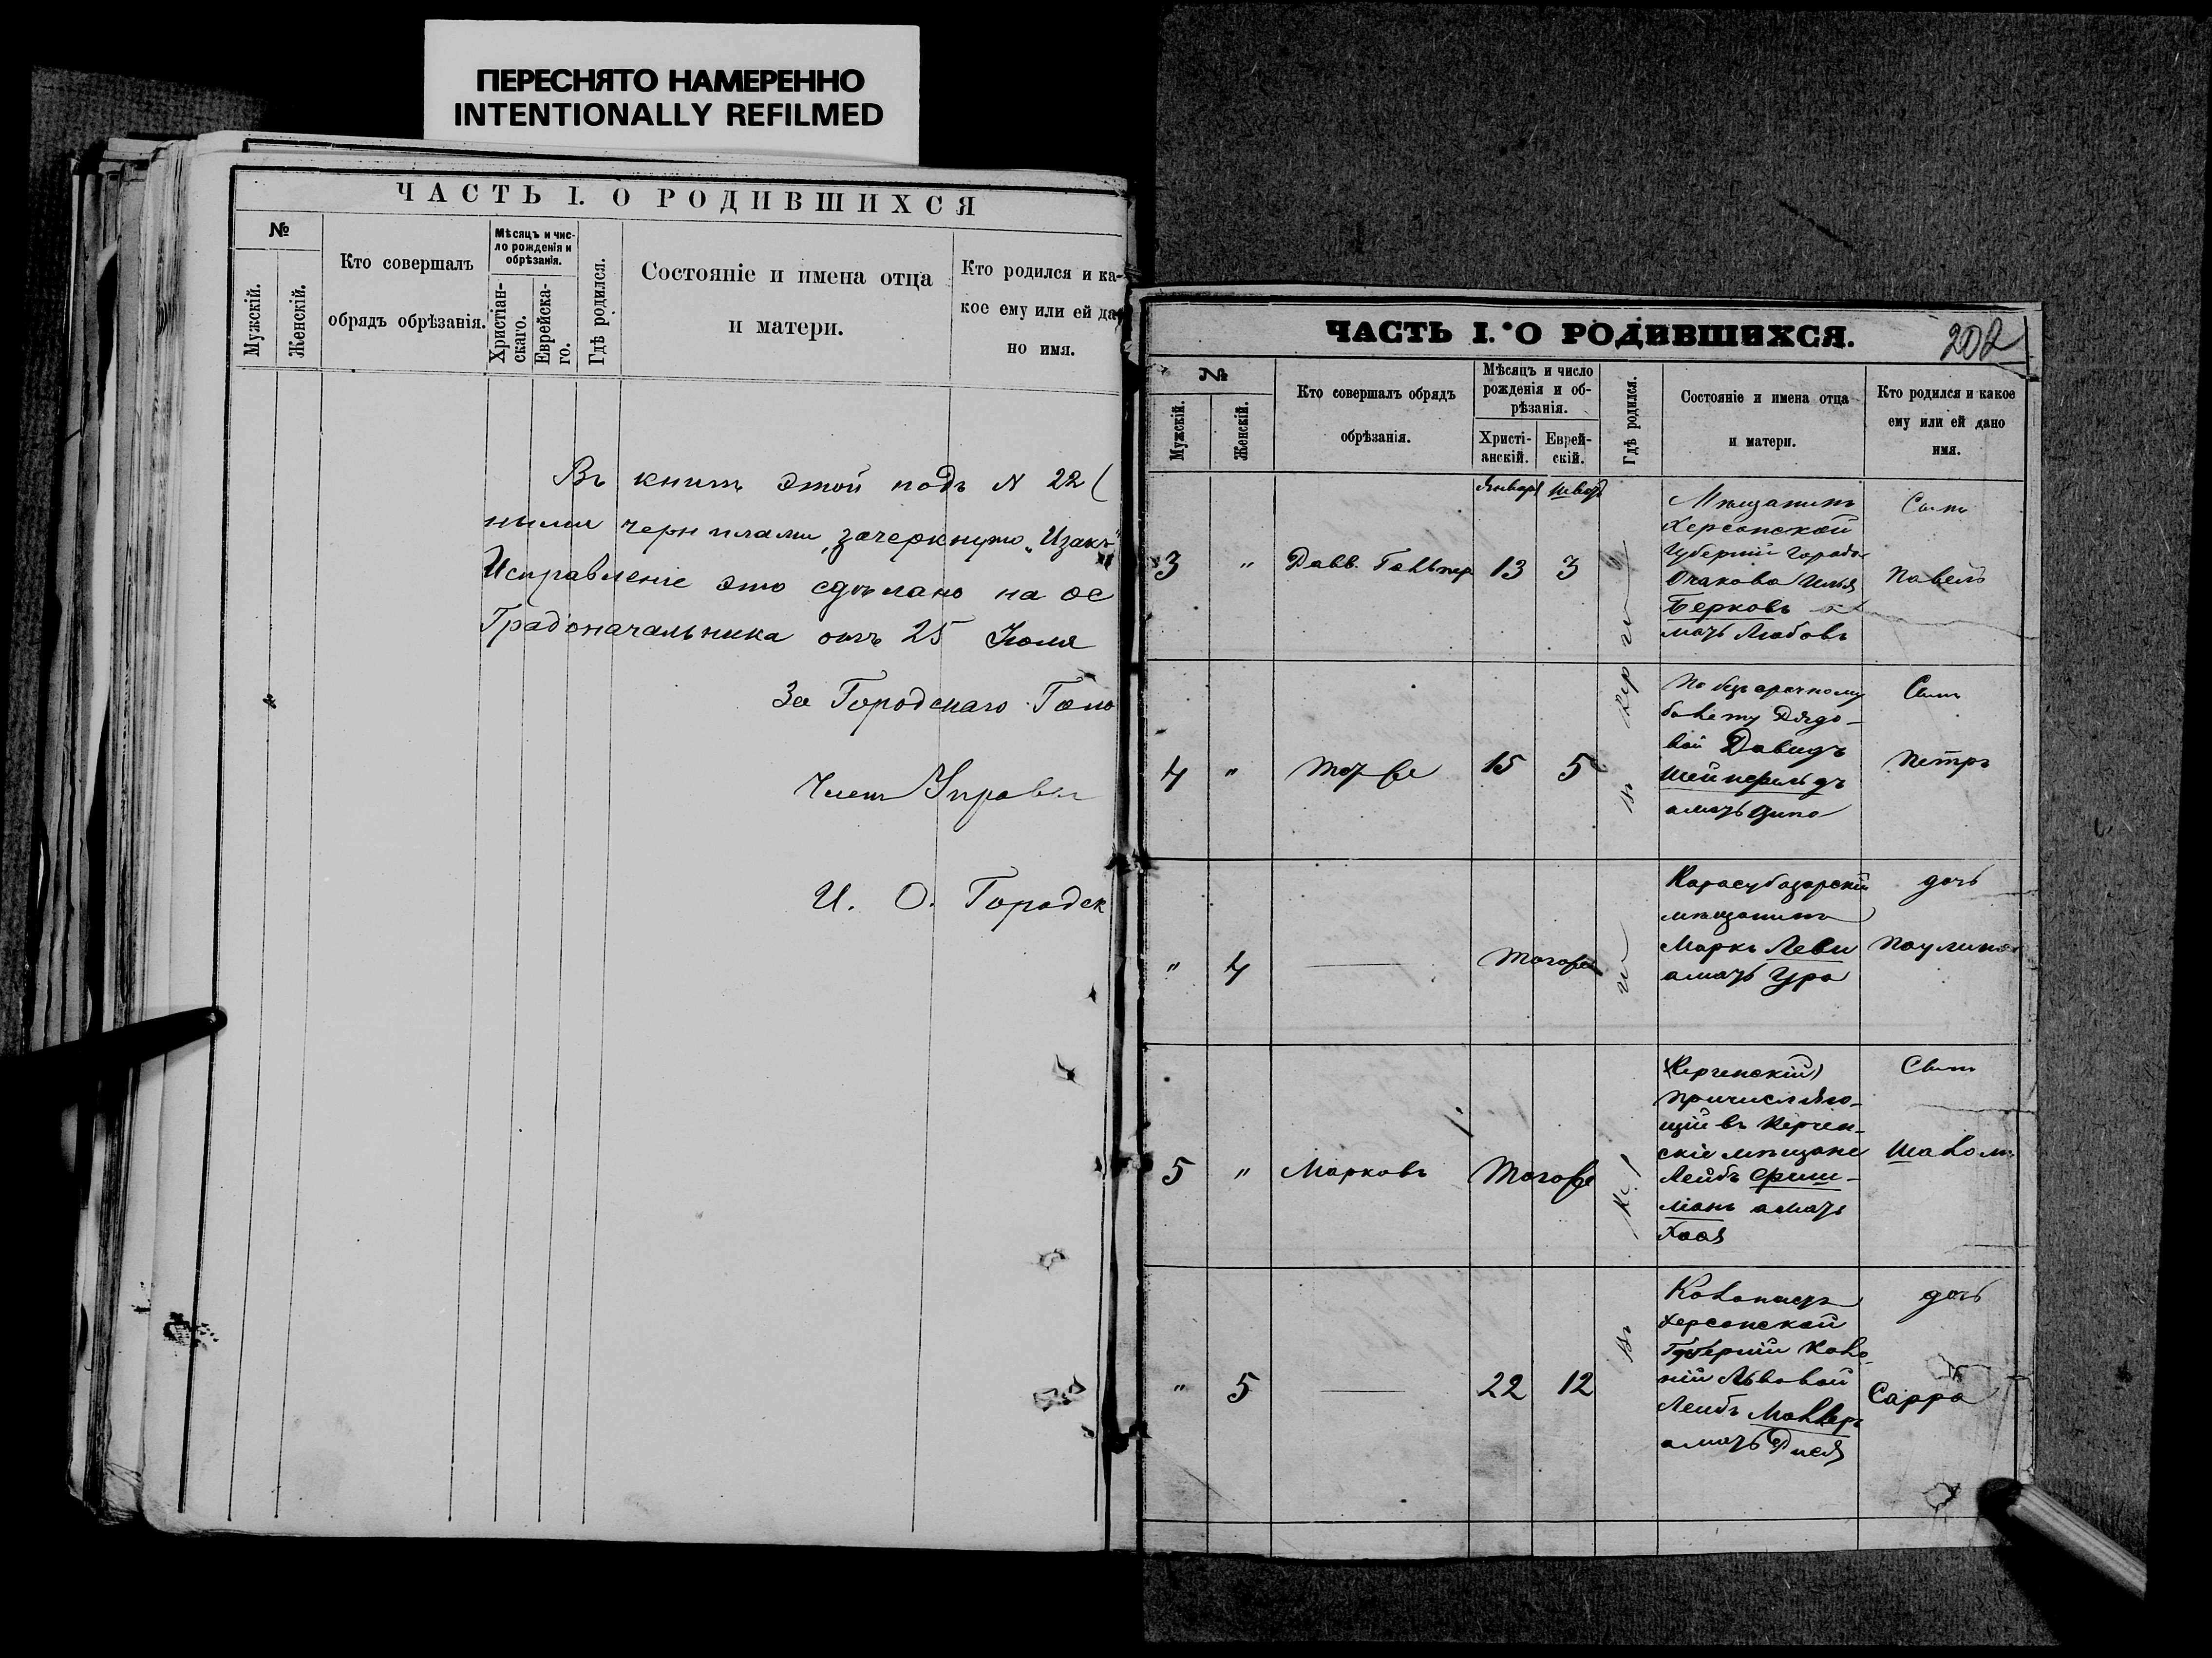 ПЕРЕСНЯТО НАМЕРЕННО
INTENTIONALLY REFILMED
ЧАСТЬ I. О РОДИВШИХСЯ
№
Мужскій.
Женскій.
Кто совершалъ
обрядъ обрѣзанія.
Мѣсяцъ и чис-
ло рожденія и
обрѣзанія.
Христіан-
скаго.
Еврейска-
го.
Гдѣ родился.
Состояніе и имена отца
и матери.
Кто родился и ка-
кое ему или ей да
но имя.
Въ книгѣ этой подъ N 22
ными чернилами, зачеркнуто „Изакъ"
Исправленіе это сдѣлано на ос
Градоначальника отъ 25 Іюля
За Городскаго Голо
Членъ Управы
И. О. Городск
ЧАСТЬ I. О РОДИВШИХСЯ.
202
№
Мужскій.
Женскій.
Кто совершалъ обрядъ
обрѣзанія.
Мѣсяцъ и число
рожденія и об-
рѣзанія.
Христі-
анскій.
Еврей-
скій.
Гдѣ родился.
Состояніе и имена отца
и матери.
Кто родился и какое
ему или ей дано
имя.
Января Шватъ
3 " Давв. 13 3
Мѣщанинъ
Херсонской
Губерніи Города
Очакова Илья
Берковъ а
мать Любовь
Сынъ
Павелъ
4 " Тотъ же 15 5
По безсрочному
билету Рядо-
вой Давидъ
Шейнфельдъ
а мать Ципа
Сынъ
Петръ
" 4 — Тогоже
Карасубазарскій
мѣщанинъ
Маркъ Леви
а мать
дочь
Паулина
5 " Марковъ Тогоже
Керченскій
причисляю-
щій въ Керчен-
скіе мѣщане
Лейбъ Фриш-
манъ а мать
Хая
Сынъ
Шаломъ
" 5 — 22 12
Колонистъ
Херсонской
Губерніи Коло-
ніи Львовой
Лейбъ
а мать
дочь
Сарра